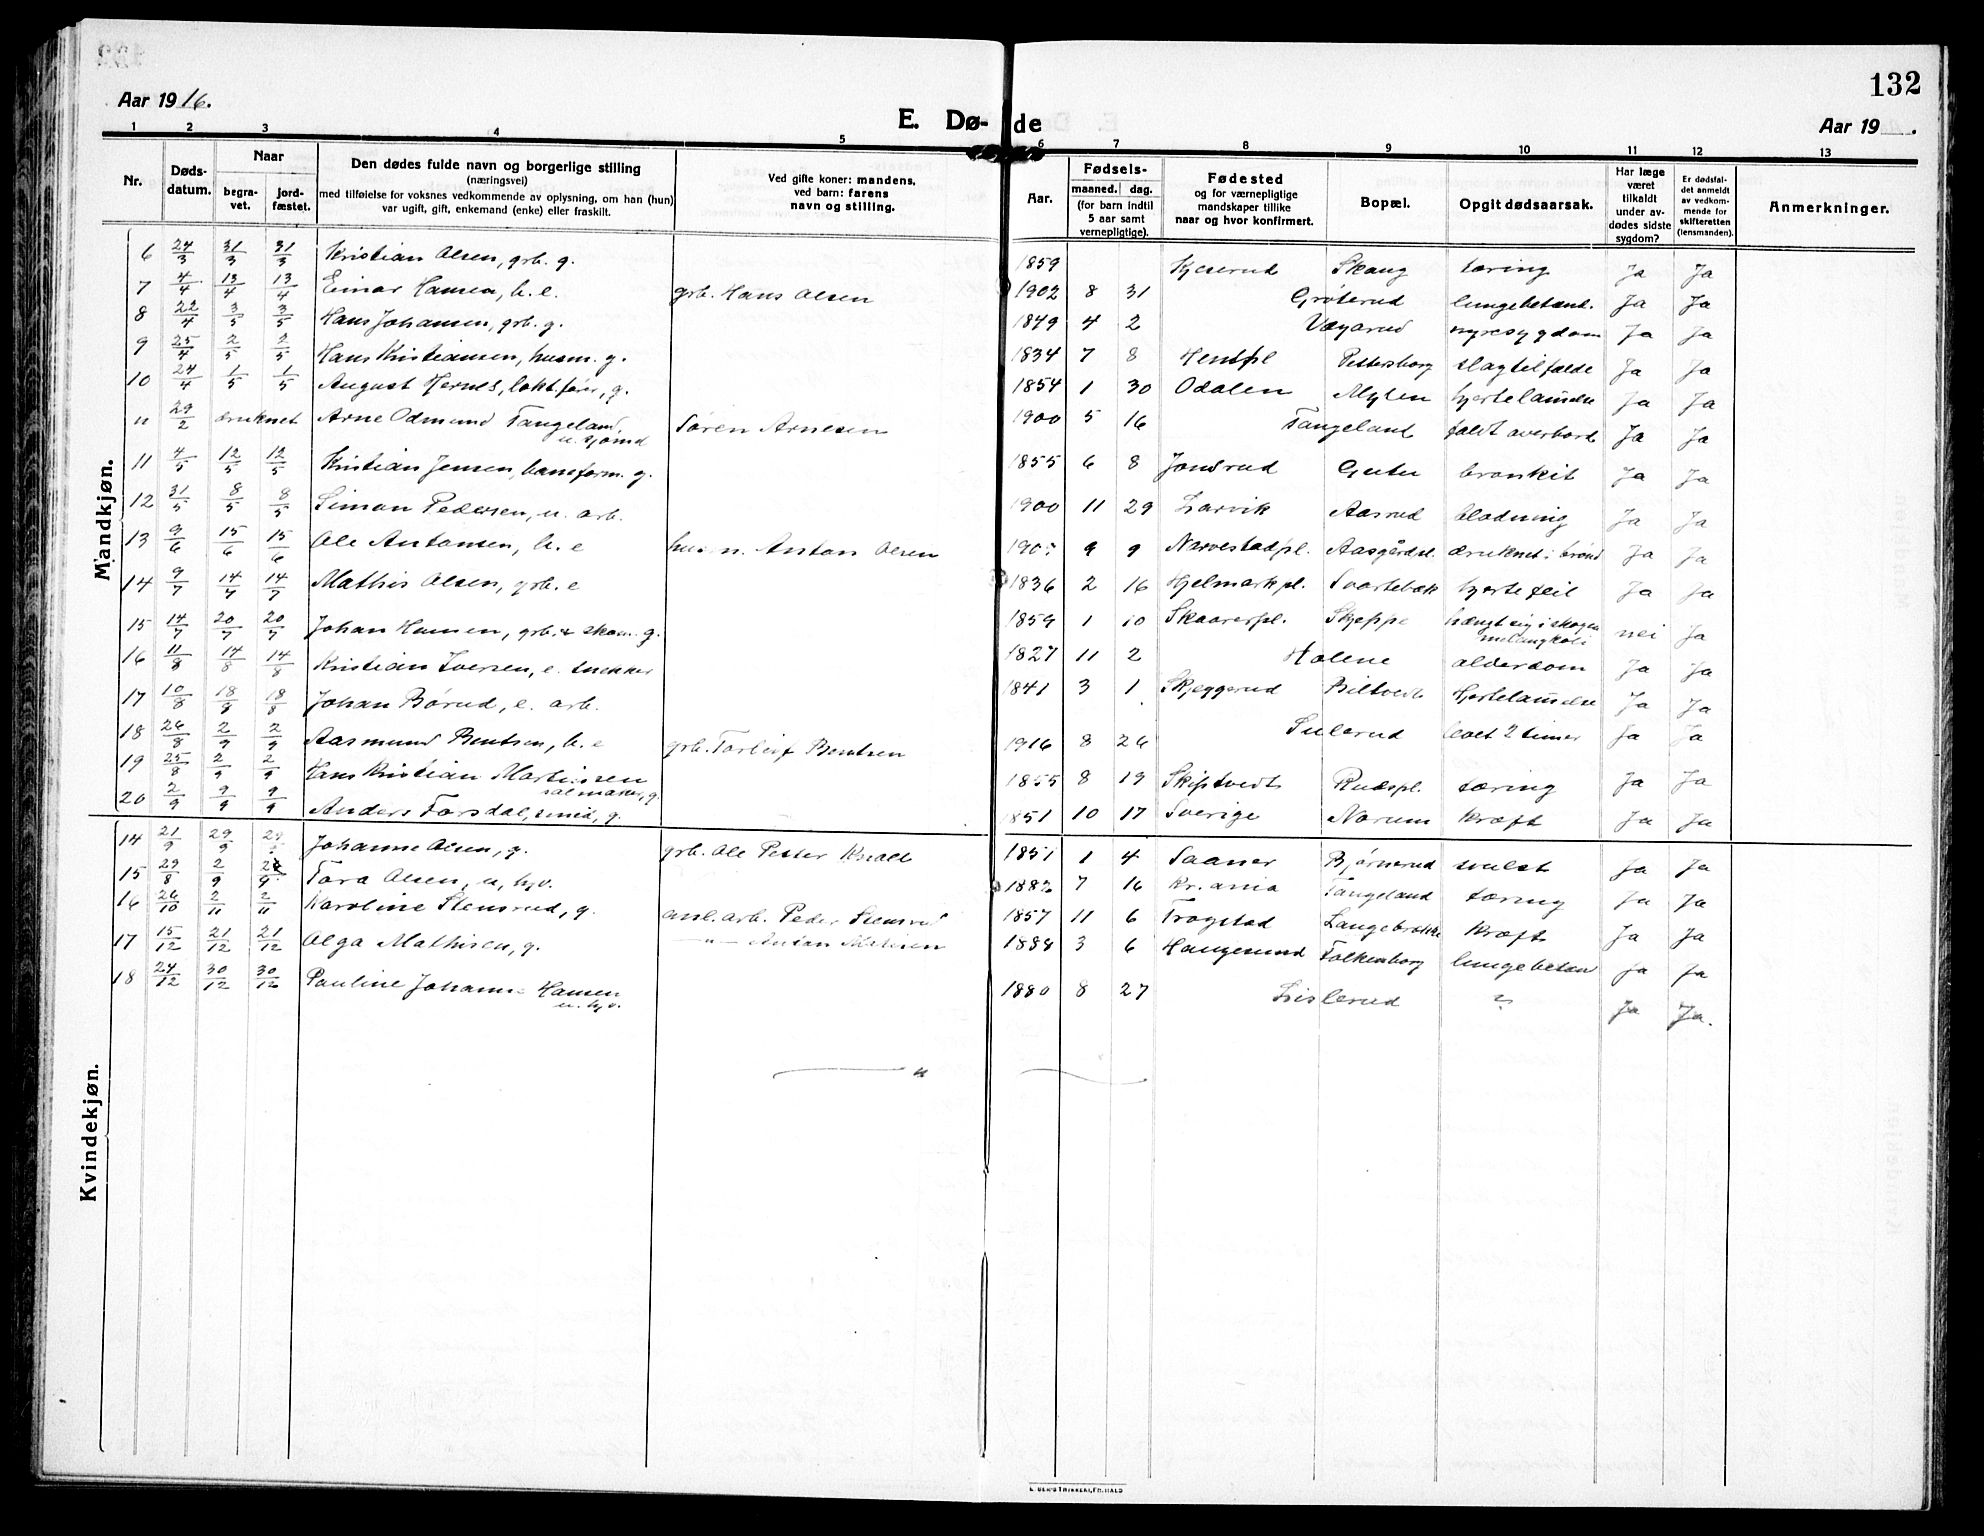 132
Aar 1916.
E. Dø- de
Aar 19 .
1 2 3 4 5 6 7 8 9 10 11 12 13
Nr.
Døds-
datum.
Naar
begra-
vet.
jord-
fæstet.
Den dødes fulde navn og borgerlige stilling
(næringsvei)
med tilføielse for voksnes vedkommende av oplysning, om han (hun)
var ugift, gift, enkemand (enke) eller fraskilt.
Ved gifte koner: mandens,
ved barn: farens
navn og stilling.
Aar.
Fødsels-
maaned. dag.
(for barn indtil
5 aar samt
vernepligtige).
Fødested
og for værnepligtige
mandskaper tillike
naar og hvor konfirmert.
Bopæl.
Opgit dødsaarsak.
Har læge
været
tilkaldt
under av-
dødes sidste
sygdom?
Er dødsfal-
det anmeldt
av vedkom-
mende for
skifteretten
(lensmanden).
Anmerkninger.
Mandkjøn.
6 24/3 31/3 31/3 Kristian Olsen, grb. g. 1859 Kjeserud Skaug tæring Ja Ja
7 4/4 13/4 13/4 Einar Hansen, h. e. grb. Hans Olsen 1902 8 31 Grøterud lungebetænd. Ja Ja
8 22/4 3/5 3/5 Hans Johansen, grb. g. 1849 4 2 Vegarud nyresygdom Ja Ja
9 25/4 2/5 2/5 Hans Kristiansen, husm. g. 1834 7 8 Pettersborg slagtilfælde Ja Ja
10 24/4 1/5 1/5 August Hernes, g. 1854 1 30 Odalen Myten hjertelammelse Ja Ja
" 29/2 druknet Arne Odmund Tangeland,
u. sjømd Søren Arnesen 1900 5 16 Tangeland faldt overbord Ja Ja
11 4/5 12/5 12/5 Kristian Jensen, baneform. g. 1855 6 8 Jonsrud Guter bronkit Ja Ja
12 31/5 8/5 8/5 Simon Pedersen, u. arb. 1900 11 29 Larvik Aasrud blodning Ja Ja
13 9/6 15/6 15/6 Ole Antonsen, h. e Anton Olsen 9 9 Narvestadpl. Aasgårdsl. druknet i brønd Ja Ja
14 9/7 14/7 14/7 Mathis Olsen, grb. e 1836 2 16 Hjelmark pl. Svartebæk hjertefeil Ja Ja
15 14/7 20/7 20/7 Johan Hansen, grb. & skom. g. 1859 1 10 Skaarerpl. Skjeppe hængt sig i skogen
melangkoli nei Ja
16 11/8 14/8 14/8 Kristian Iversen, e. snekker 1827 11 2 Holene alderdom Ja Ja
17 10/8 18/8 18/8 Johan Børud, e. arb. 1841 3 1 Skjeggerud Biltvedt Hjertelammelse Ja Ja
18 26/8 2/9 2/9 Aasmund Bentsen, h. e grb. Torleif Bentsen 1916 8 26 Sulerud levet 2 timer Ja Ja
19 25/8 2/9 2/9 Hans Kristian Martinsen
salmaker, g. 1855 8 19 Skiptvedt Rudspl. tæring Ja Ja
20 2/9 9/9 9/9 Anders Forsdal, smed, g. 1851 10 17 Sverige Norum kræft Ja Ja
Kvindekjøn.
14 21/9 29/9 29 Johanne Olsen, g. grb. Ole Petter 1851 1 4 Saaner Bjørnerud svulst Ja Ja
15 29/8 2/9 Tora Olsen, u, hjv. 7 16 Kr.ania Tangeland tæring Ja Ja
16 26/10 2/11 2/11 Karoline Stensrud, g. anl. arb. Peder Stensrud 1857 11 6 Trøgstad Langebrække kræft Ja Ja
17 15/12 21/12 21/12 Olga Mathisen, g. — " — Anton Mathisen 1884 3 6 Haugesund Falkenborg lungebetæn Ja Ja
18 24/12 30/12 30/12 Pauline Johanne Hansen
u. hjv. 1880 8 27 Lislerud ? Ja Ja.